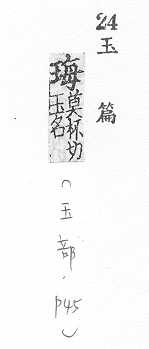 24
玉篇
珻莫杯切玉名
（玉部．P45）